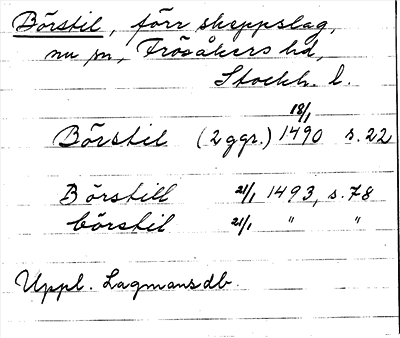 Börstil, förr skeppslag,
nu sn, Frösåkers hd,
Stockh. l.
Börstil (2 ggr.) 18/1 1490 s. 22
Börstill 21/1 1493, s. 78
börstil 21/1 " "
Uppl. Lagmansdb.